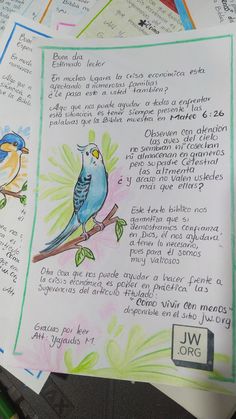 Buen dia
Estimado lector
En muchos lugares la crisis económica esta
afectando a numerosas familias
¿Le pasa esto a usted tambien?
Algo que nos puede ayudar a todos a enfrentar
esta situación es tener siempre presente las
palabras que la Biblia muestra en Mateo 6:26
Observen con atención
las aves del cielo
no siembran ni cosechan
ni almacenan en graneros
pero su padre celestial
las alimenta
¿y acaso no valen ustedes
más que ellas?
Este texto bíblico nos
garantiza que si
demostramos confianza
en Dios, él nos ayudara
a tener lo necesario,
pues para él somos
muy valiosos
Otra cosa que nos puede ayudar a hacer frente a
la crisis económica es poner en práctica las
sugerencias del articulo titulado:
"Como vivir con menos"
disponible en el sitio jw.org
Gracias por leer
Att: M.
JW
.ORG